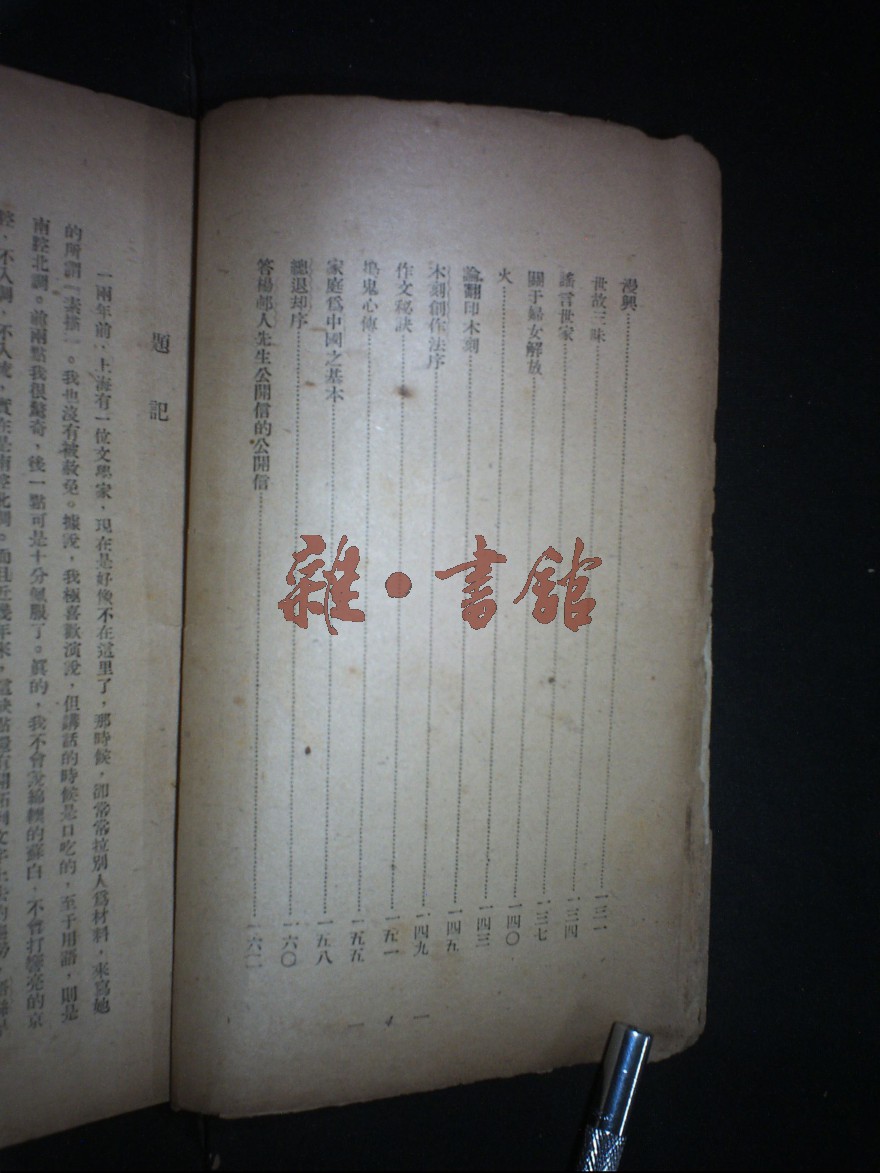 漫興……一三一
世故三昧……一三四
謠言世家……一三七
關于婦女解放……一四〇
火……一四三
論翻印木刻……一四五
木刻創作法序……一四九
作文秘訣……一五一
搗鬼心傳……一五五
家庭爲中國之基本……一五八
總退却序……一六〇
答楊邨人先生公開信的公開信……一六二
題記
一兩年前，上海有一位文學家，現在是好像不在這里了，那時候，卻常常拉別人爲材料，來寫她
的所謂「素描」。我也沒有被赦免。據說，我極喜歡演說，但講話的時候是口吃的，至于用語，則是
南腔北調。前兩點我很驚奇，後一點可是十分佩服了。眞的，我不會說綿軟的蘇白，不會打響亮的京
腔，不入調，不入流，實在是南腔北調。而且近幾年來，這缺點還有開拓到文字上去的趨勢，
雜・書館